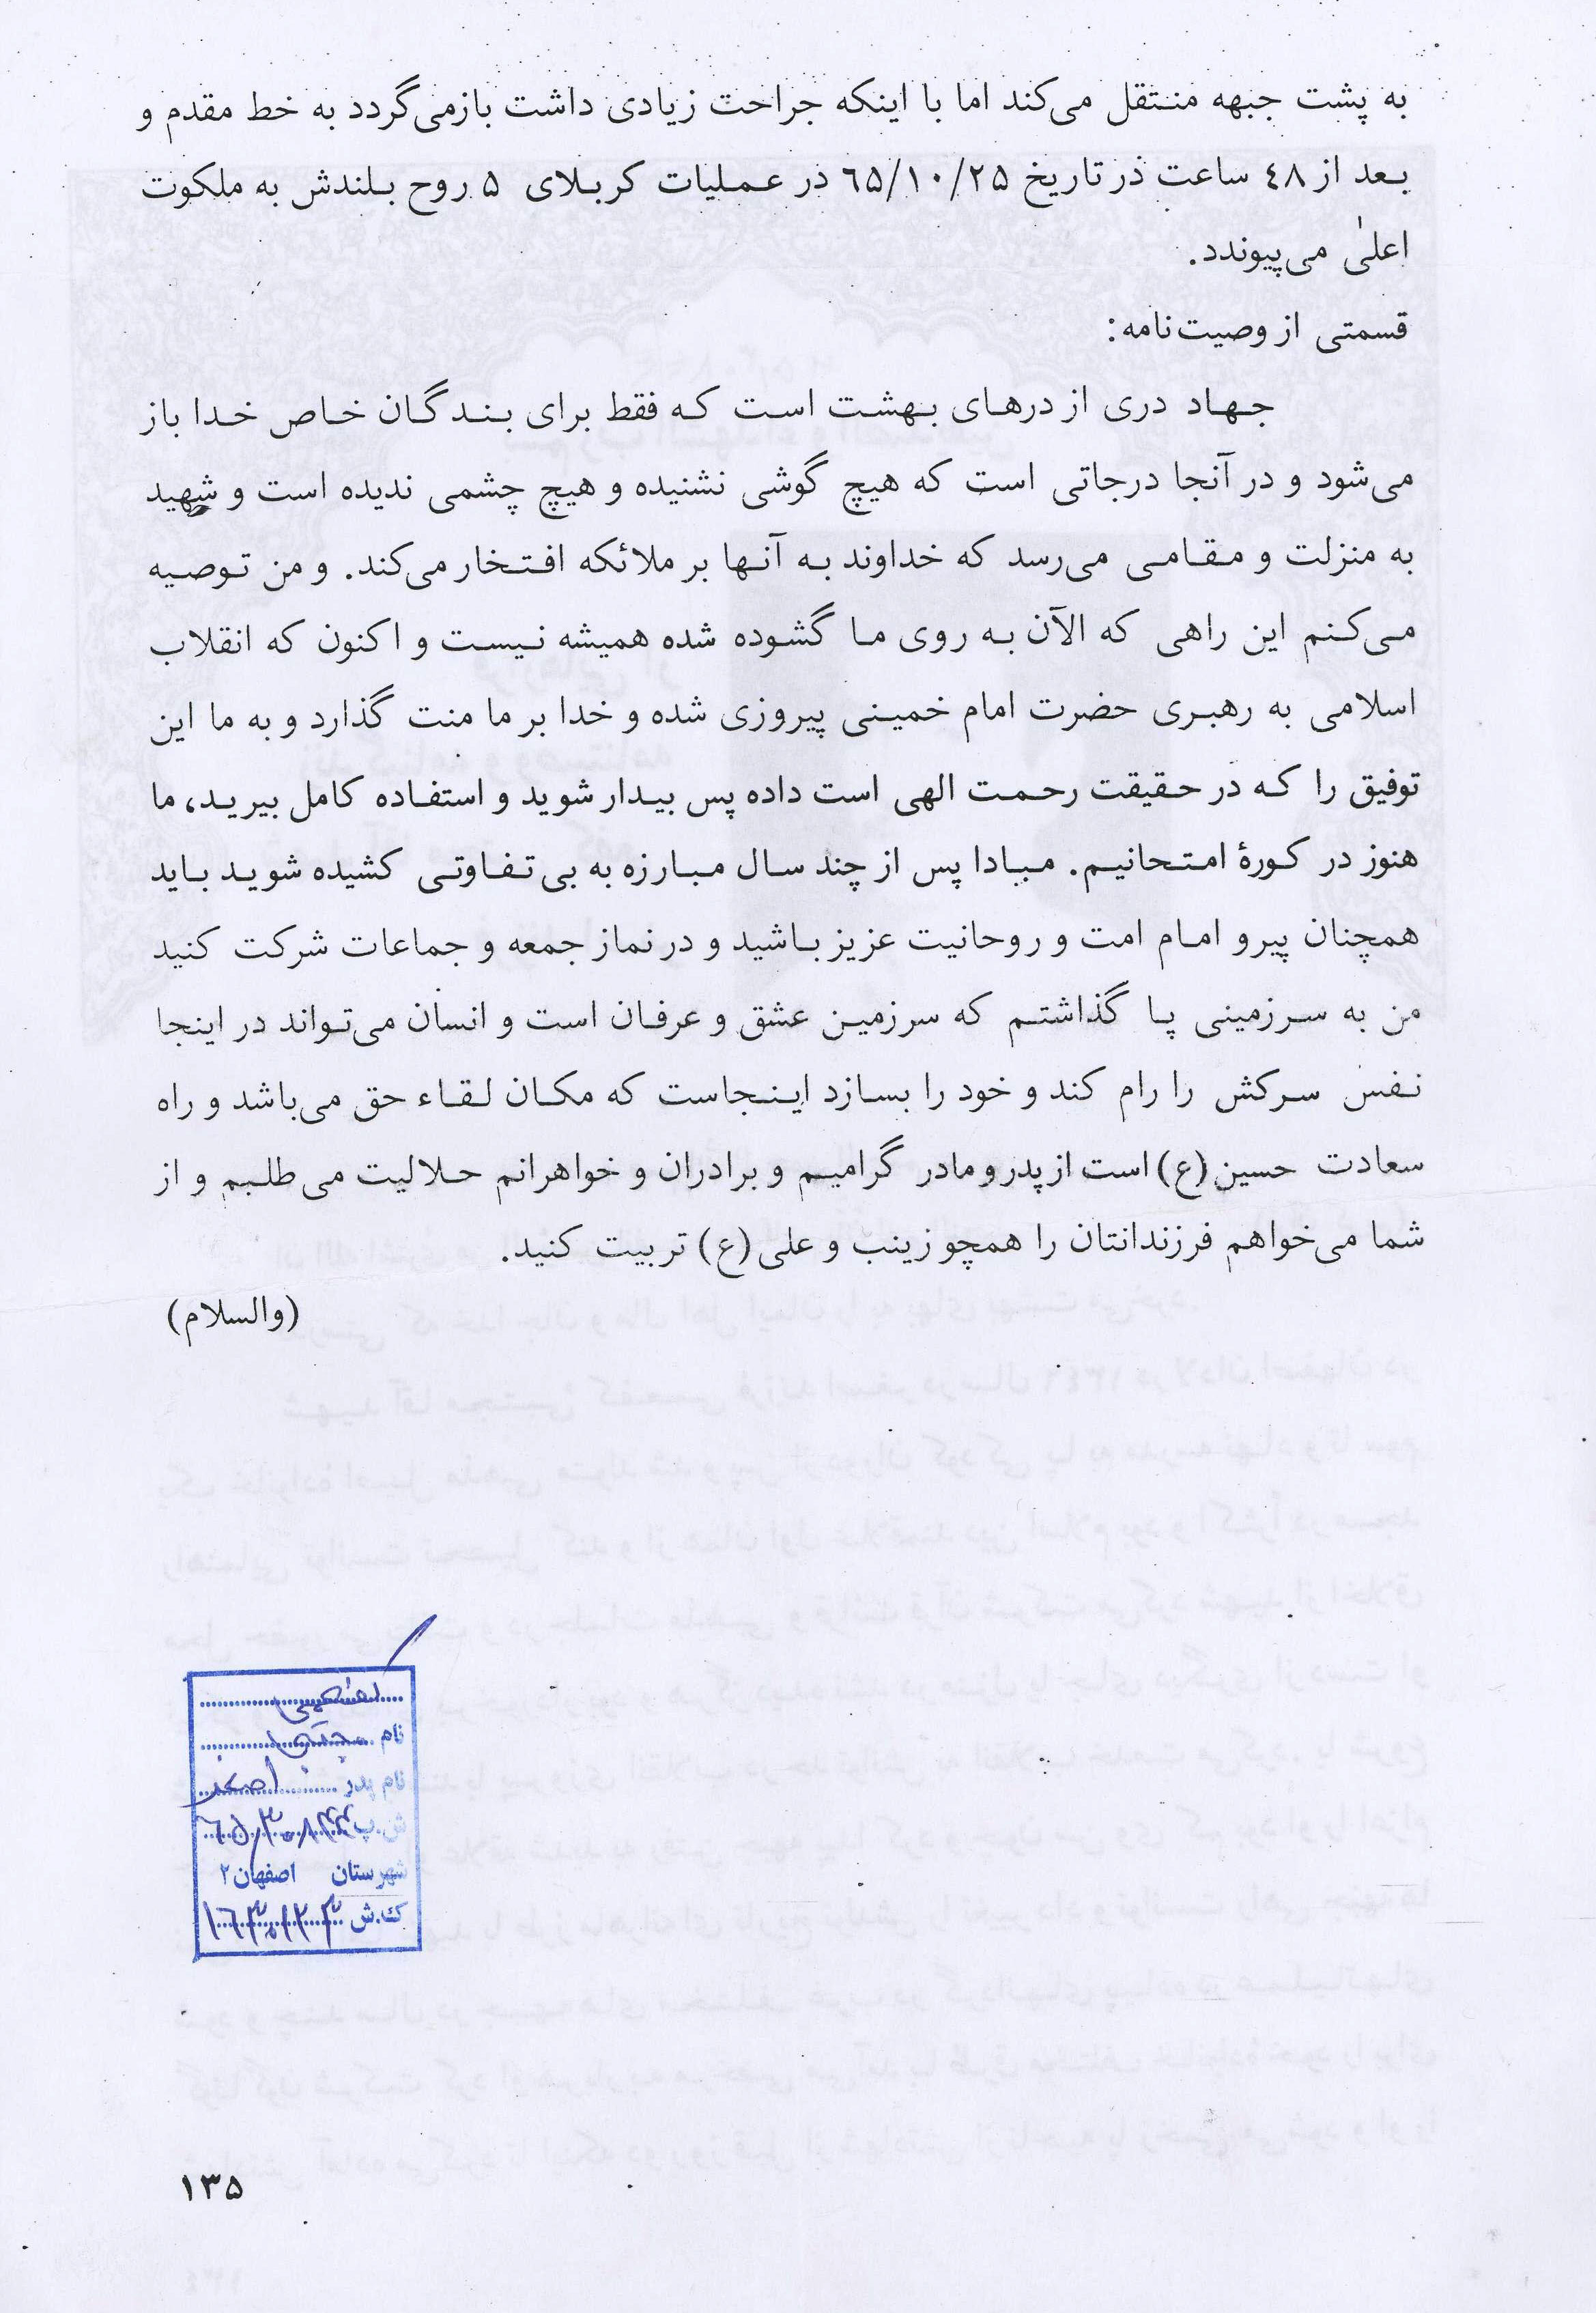 به پشت جبهه منتقل می‌کند اما با اینکه جراحت زیادی داشت بازمی‌گردد به خط مقدم و
بعد از ٤٨ ساعت در تاریخ ٦۵/۱۰/۲۵ در عملیات کربلای ۵ روح بلندش به ملکوت
اعلیٰ می‌پیوندد.
قسمتی از وصیت‌نامه:
جهاد دری از درهای بهشت است که فقط برای بندگان خاص خدا باز
می‌شود و در آنجا درجاتی است که هیچ گوشی نشنیده و هیچ چشمی ندیده است و شهید
به منزلت و مقامی می‌رسد که خداوند به آنها بر ملائکه افتخار می‌کند. و من توصیه
می‌کنم این راهی که الآن به روی ما گشوده شده همیشه نیست و اکنون که انقلاب
اسلامی به رهبری حضرت امام خمینی پیروزی شده و خدا بر ما منت گذارد و به ما این
توفیق را که در حقیقت رحمت الهی است داده پس بیدار شوید و استفاده کامل بیرید، ما
هنوز در کورهٔ امتحانیم. مبادا پس از چند سال مبارزه به بی‌تفاوتی کشیده شوید باید
همچنان پیرو امام امت و روحانیت عزیز باشید و در نماز جمعه و جماعات شرکت کنید
من به سرزمینی پا گذاشتم که سرزمین عشق و عرفان است و انسان می‌تواند در اینجا
نفس سرکش را رام کند و خود را بسازد اینجاست که مکان لقاء حق می‌باشد و راه
سعادت حسین (ع) است از پدر و مادر گرامیم و برادران و خواهرانم حلالیت می‌طلبم و از
شما می‌خواهم فرزندانتان را همچو زینب و علی (ع) تربیت کنید.
(والسلام)
نام مجتبی
نام پدر اصغر
ش.پ
شهرستان اصفهان ۲
کد.ش
۱۳۵